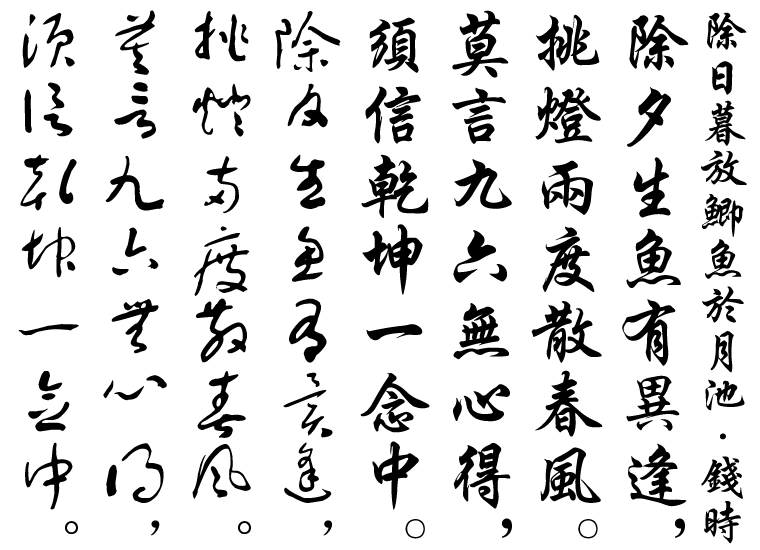 除日暮放鯽魚於月池·錢時
除夕生魚有異逢，
挑燈兩度散春風。
莫言九六無心得，
須信乾坤一念中。
除夕生魚有異逢，
挑燈兩度散春風。
莫言九六無心得，
須信乾坤一念中。